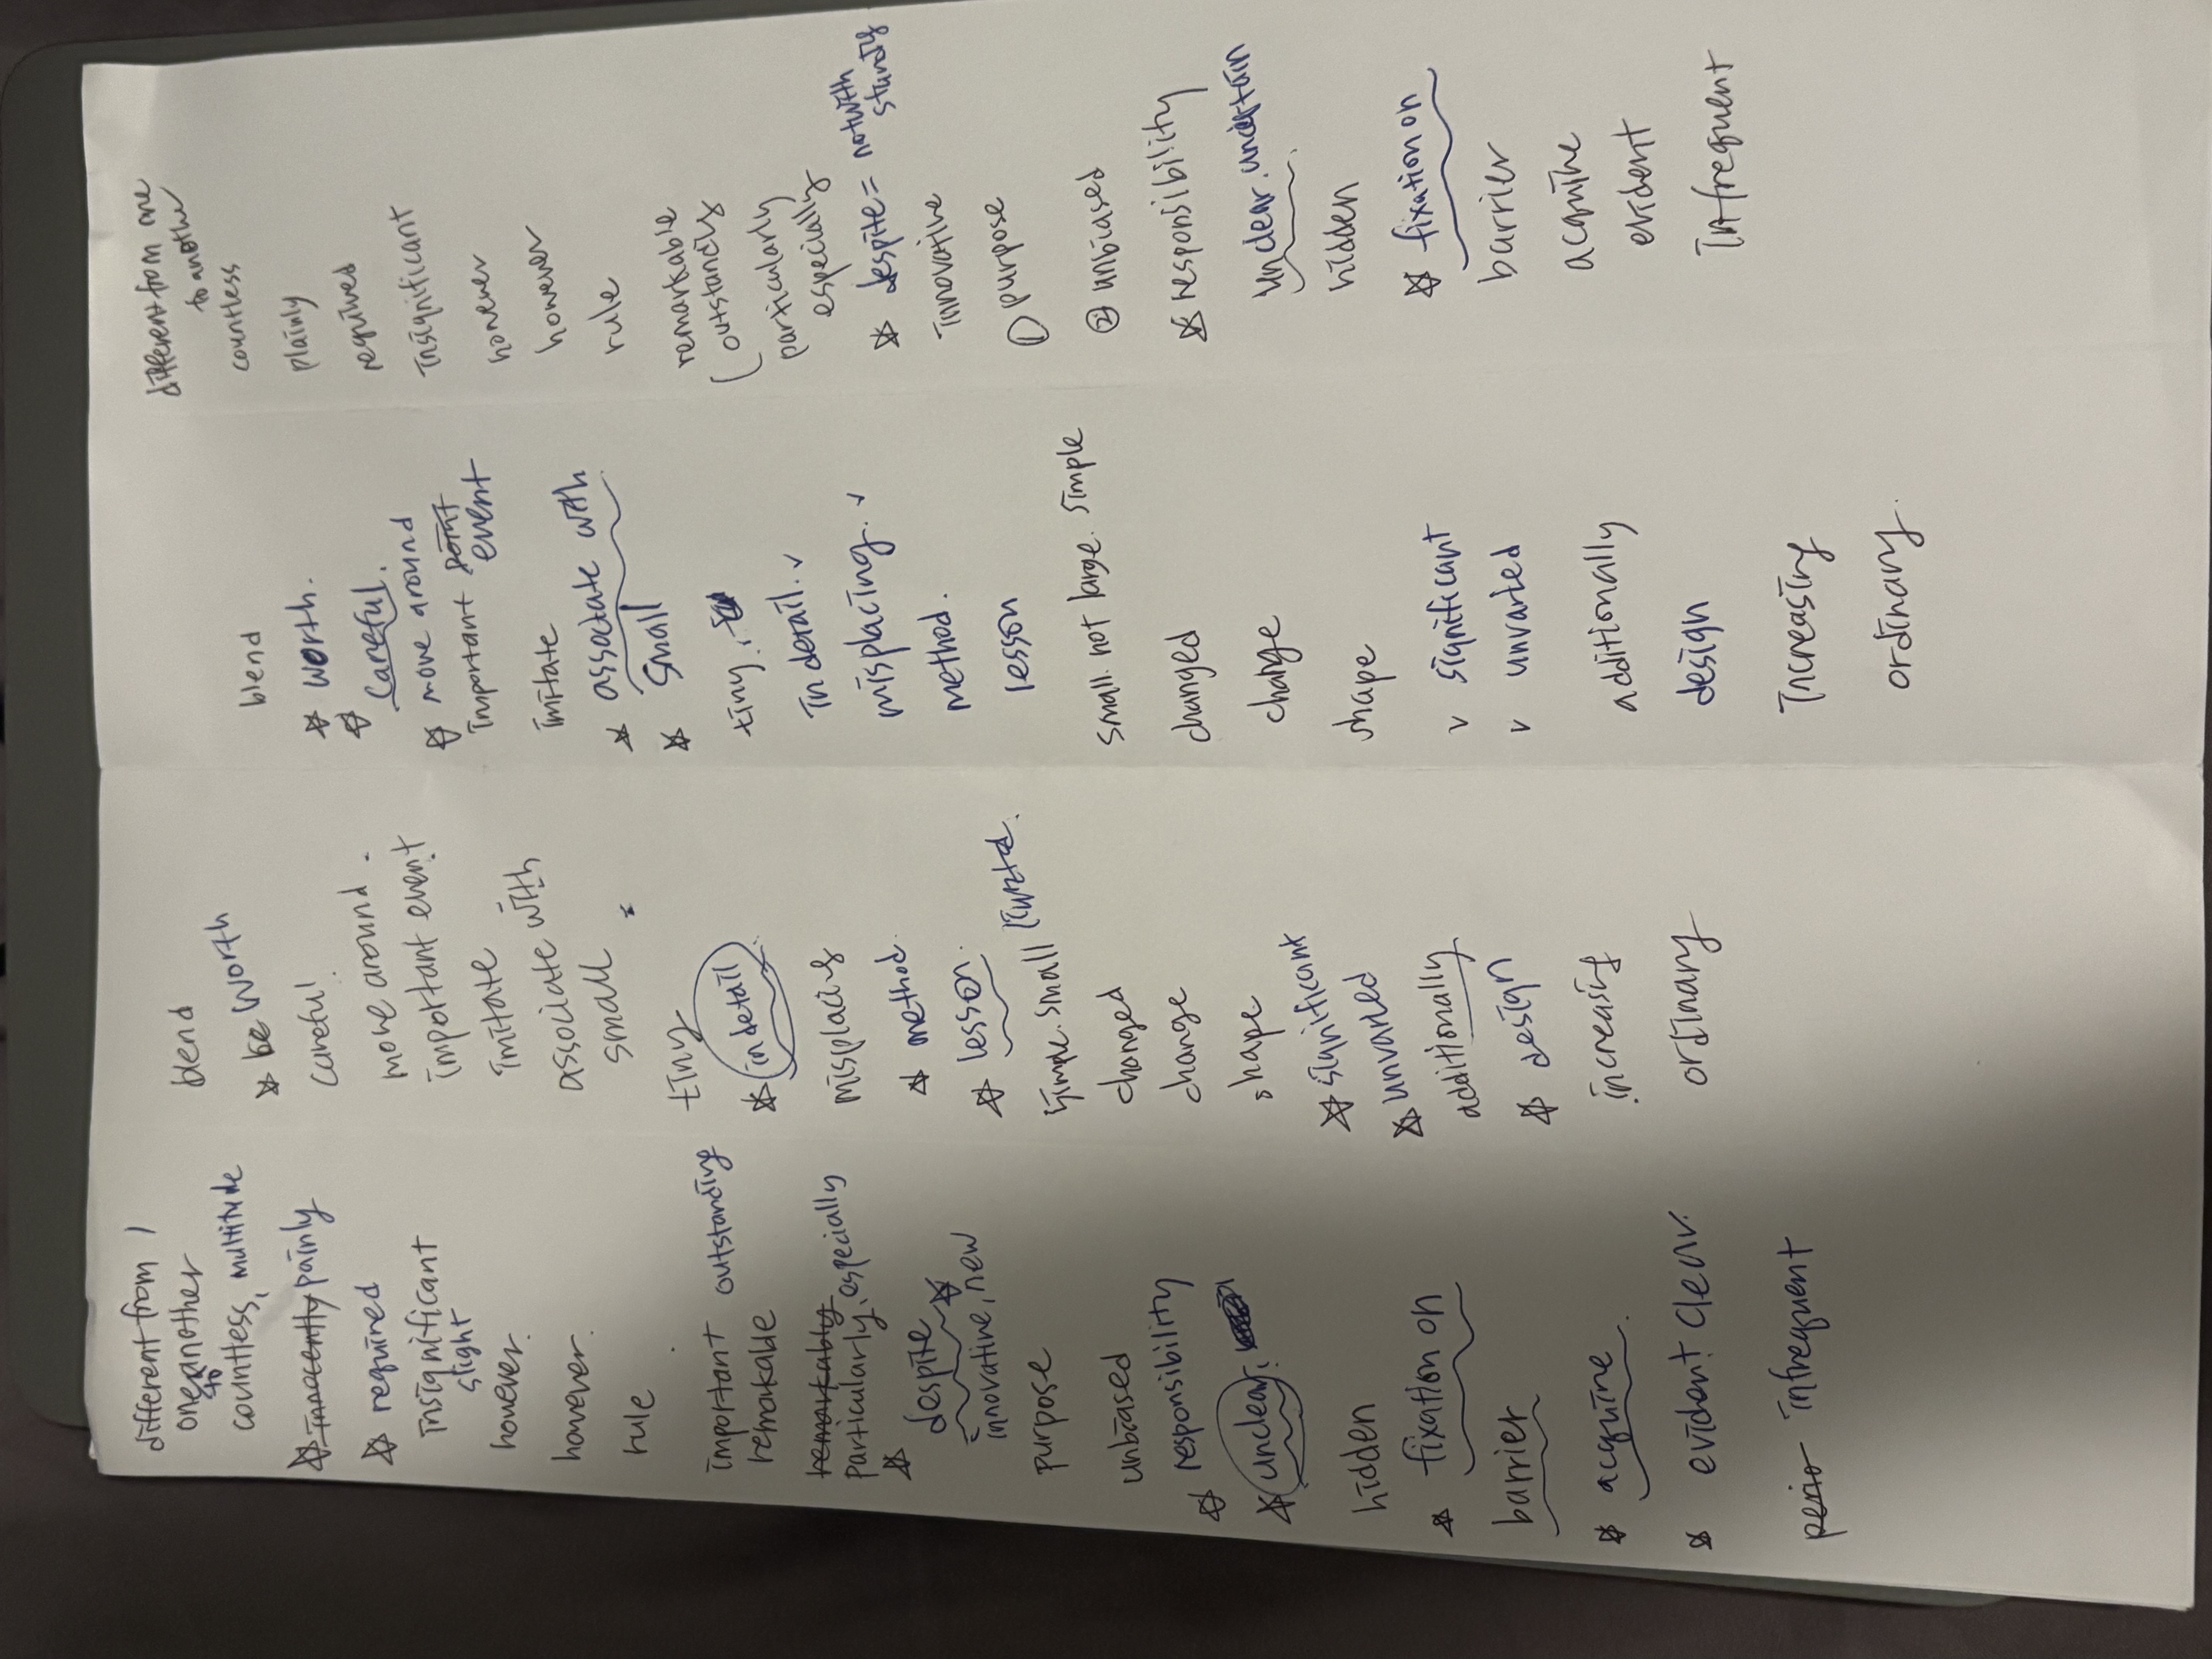 different from
one another
to
countless, multitude
innocently painly
required
insignificant
slight
however.
however.
rule
important outstanding
remakable
remarkably
particularly, especially
despite
innovative, new
purpose
unbiased
responsibility
unclear,
hidden
fixation on
barrier
acquire
evident clear.
perio infrequent
blend
be worth
careful.
move around.
important event
imitate
associate with
small
tiny
in detail
misplacing
method
lesson
simple. small
changed
change
shape
significant
unvaried
additionally
design
increasing
ordinary
blend
worth.
careful.
move around
important point event
imitate
associate with
small
tiny.
in detail.
misplacing.
method.
lesson
small. not large. simple
changed
change
shape
significant
unvaried
additionally
design
Increasing
ordinary.
different from one
to another
countless
plainly
required
insignificant
however
however
rule
remarkable
outstandig
particularly
especially
despite = notwith
standig
innovative
① purpose
② unbiased
responsibility
unclear. uncertain
hidden
fixation on
barrier
acquire
evident
Infrequent